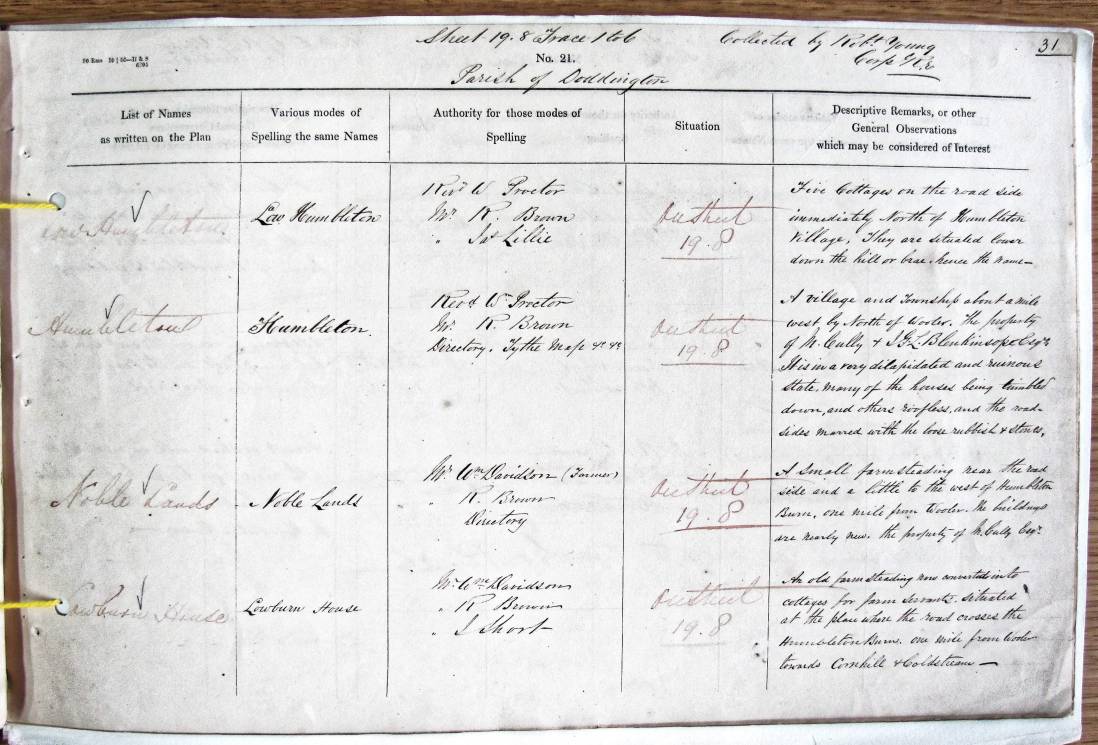 Sheet 19.8 Trace 1 to 6
Collected by Robt. Young
Corpl R.E
31
No. 21.
Parish of Doddington
List of Names
as written on the Plan
Various modes of
Spelling the same Names
Authority for those modes of
Spelling
Situation
Descriptive Remarks, or other
General Observations
which may be considered of Interest
Low Humbleton
Low Humbleton
Revd W Proctor
Mr R. Brown
" Jas Lillie
On Sheet
19.8
Five Cottages on the road side
immediately North of Humbleton
Village, They are situated lower
down the hill or brae hence the name—
Humbleton
Humbleton.
Revd W Proctor
Mr R. Brown
Directory, Tythe Map &c &c
On Sheet
19.8
A village and Township about a mile
west by North of Wooler. The property
of McCully & Blenkinsopp Esqrs
It is in a very dilapidated and ruinous
state, many of the houses being tumbled
down, and others roofless, and the road-
sides marred with the loose rubbish & stones.
Noble Lands
Noble Lands
Mr Wm Davidson (Farmer)
" R. Brown
Directory
On Sheet
19.8
A small farmsteading near the road
side and a little to the west of Humbleton
Burn, one mile from Wooler. The buildings
are nearly new. the property of McCully Esqr.
Lowburn House
Lowburn House
Mr Wm Davidson
" R Brown
" J Short
On Sheet
19.8
An old farmsteading now converted into
cottages for farm servants. situated
at the place where the road crosses the
Humbleton Burn. one mile from Wooler
towards Cornhill & Coldstream—